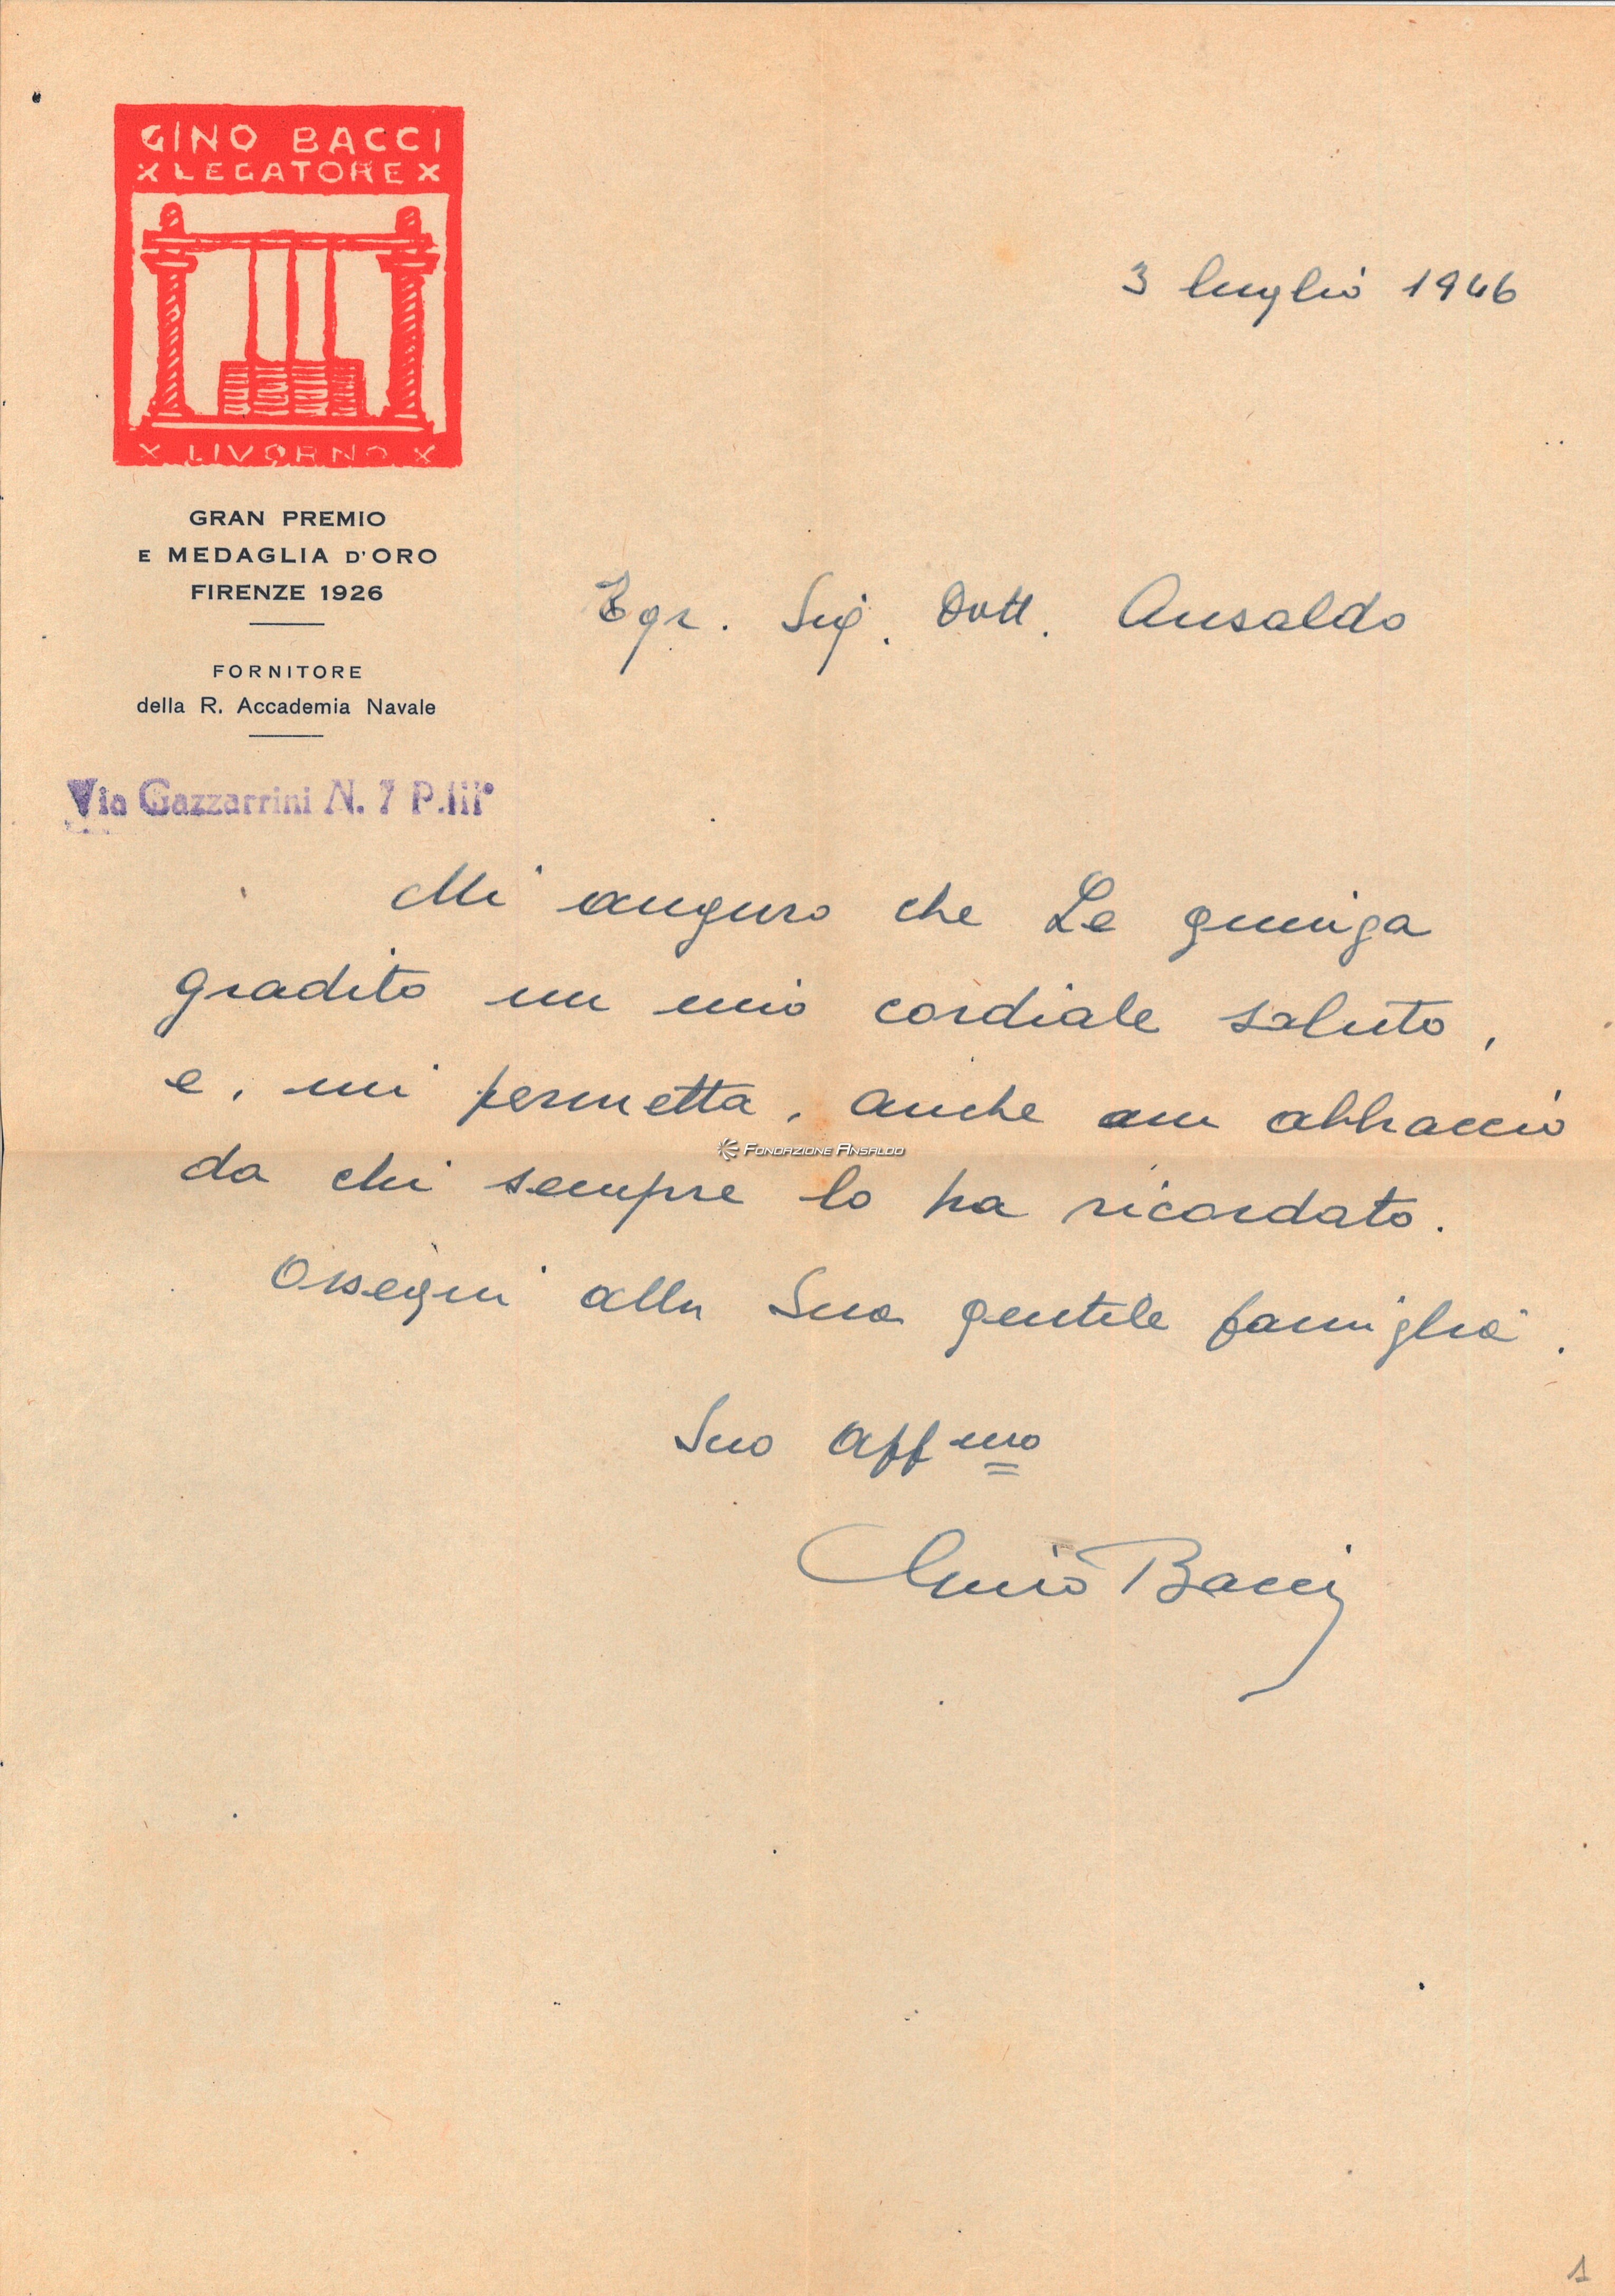 GINO BACCI
X LEGATORE X
X LIVORNO X
GRAN PREMIO
E MEDAGLIA D'ORO
FIRENZE 1926
FORNITORE
della R. Accademia Navale
Via Gazzarrini N. 7 P. III°
3 luglio 1946
Egr. Sig. Dott. Ansaldo
Mi auguro che Le giunga
gradito un mio cordiale saluto,
e, mi permetta, anche un abbraccio
FONDAZIONE ANSALDO
da chi sempre lo ha ricordato.
Ossequi alla Sua gentile famiglia.
Suo aff mo
Gino Bacci
1